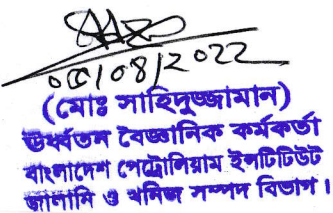 ০৫/০৪/২০২২
(মোঃ সাহিদুজ্জামান)
ঊর্ধ্বতন বৈজ্ঞানিক কর্মকর্তা
বাংলাদেশ পেট্রোলিয়াম ইন্সটিটিউট
জালানি ও খনিজ সম্পদ বিভাগ।